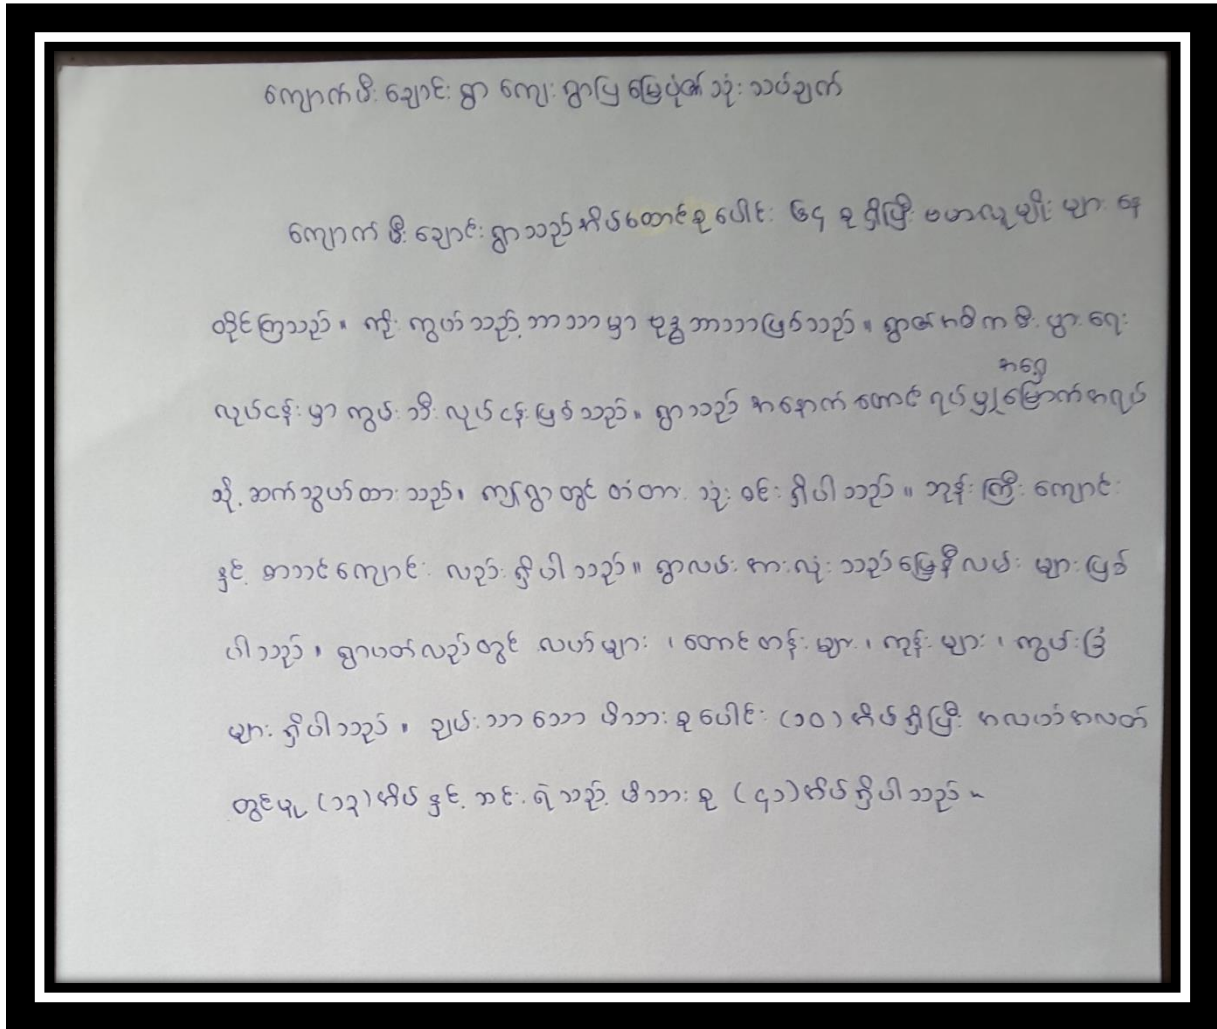 ကျောက်ဖီးချောင်းရွာ ကျေးရွာပြမြေပုံ၏သုံးသပ်ချက်
ကျောက်ဖီးချောင်းရွာသည်အိမ်ထောင်စုပေါင်း ၆၄ စုရှိပြီး ဗမာလူမျိုးများ နေ
ထိုင်ကြသည်။ ကိုးကွယ်သည့်ဘာသာမှာ ဗုဒ္ဓဘာသာဖြစ်သည်။ ရွာ၏အဓိကစီးပွားရေး
လုပ်ငန်းမှာ ကွမ်းသီးလုပ်ငန်းဖြစ်သည်။ ရွာသည် အနောက်တောင်ရပ်မှ အရှေ့မြောက်အရပ်
သို့ ဆက်သွယ်ထားသည်။ ကျေးရွာတွင် တံတား သုံးစင်းရှိပါသည်။ ဘုန်းကြီးကျောင်း
နှင့် စာသင်ကျောင်းလည်းရှိပါသည်။ ရွာလမ်းအားလုံးသည်မြေနီလမ်းများဖြစ်
ပါသည်။ ရွာပတ်လည်တွင် လယ်များ ၊ တောင်တန်းများ ၊ ကုန်းများ ၊ ကွမ်းခြံ
များရှိပါသည်။ ချမ်းသာသောမိသားစုပေါင်း (၁၀)အိမ်ရှိပြီး အလယ်အလတ်
တွင်မူ (၁၃)အိမ်နှင့် ဆင်းရဲသည့်မိသားစု (၄၁)အိမ်ရှိပါသည်။